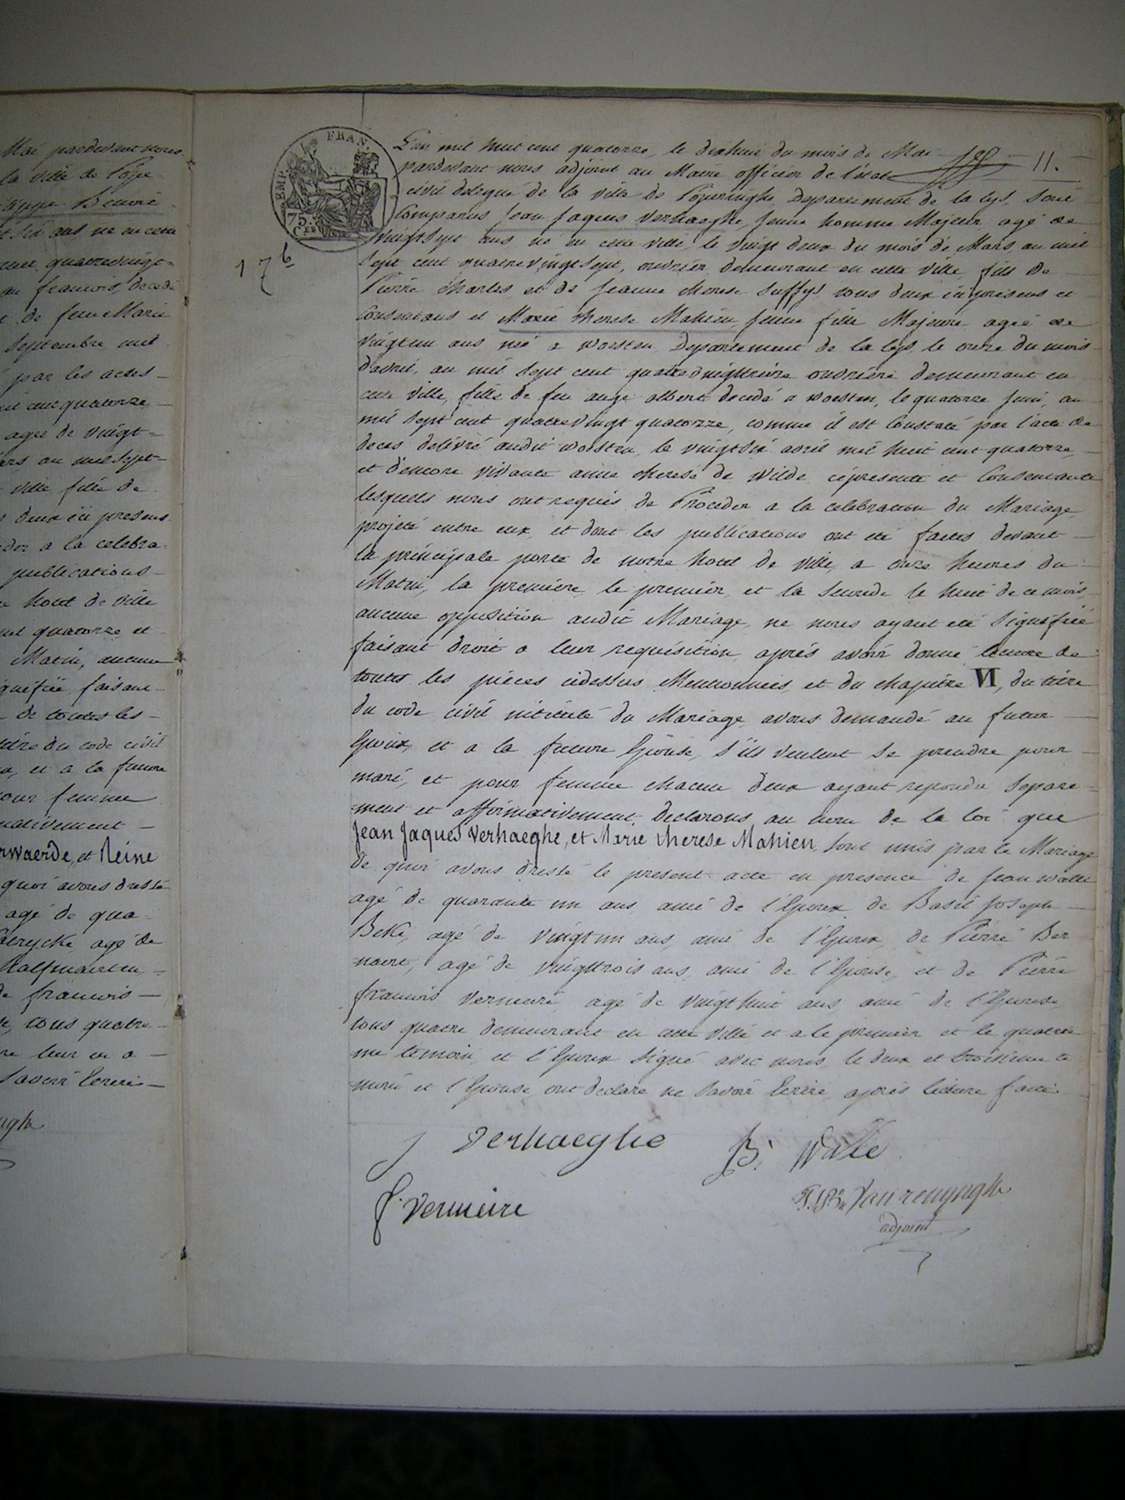 Mai pardevant nous
la ville de Pope
Philippe Beuvré
et six ans né en cette
cent quatrevingt
francois décedé
de feue Marie
Septembre mil
par les actes
cent quatorze
agée de vingt
mars au mil sept
ville fille de
deux ici presens
à la celebra
publications
hotel de ville
cent quatorze et
Matin, aucune
signifiée faisant
de toutes les
titre du code civil
et a la future
pour femme
mativement
rwaerde, et Reine
quoi avons dresté
agé de qua
agé de
de francois
tous quatre
savoir Ecrire
EMP. FRAN.
75 C.
176
L'an mil huit cent quatorze, le dixhuit du mois de Mai 11.
pardevant nous adjoint au Maire officier de l'état
civil delegué de la ville de Poperinghe Departement de la Lys, sont
Comparus Jean Jaques Verhaeghe jeune homme Majeur agé de
vingtsept ans né en cette ville, le vingt deux du mois de Mars au mil
sept cent quatrevingtsept, ouvrier demeurant en cette ville fils de
Pierre Charles et de Jeanne therese Suffys tous deux ici presens et
Consentans et Marie therese Mahieu jeune fille Majeure agée de
vingtun ans née a Woesten Departement de la Lys le onze du mois
d'avril, au mil sept cent quatrevingttreize ouvriere demeurant en
cette ville, fille de feu ange albert decedé a Woesten, le quatorze Juin, au
mil sept cent quatrevingt quatorze, comme il est Constaté par l'acte de
deces delivré audit Woesten le vingtsix avril mil huit cent quatorze
et d'encore vivante anne therese de Wilde ci presente et Consentante
lesquels nous ont requis de Proceder a la celebration du Mariage
projeté entre eux, et dont les publications ont été faites devant
la principale porte de notre hotel de ville, a onze heures du
Matin, la premiere le premier et la seconde le huit de ce mois,
aucune opposition audit Mariage, ne nous ayant été signifiée
faisant droit a leur requisition après avoir donné lecture de
toutes les pièces cidessus Mentionnées et du chapitre VI, du titre
du code civil intitulé du Mariage avons demandé au futur
Epoux et a la future Epouse, s'ils veulent se prendre pour
mari, et pour femme chacun deux ayant repondu separe
ment et affirmativement, Declarons au nom de la loi que
Jean Jaques Verhaeghe, et Marie therese Mahieu sont unis par le Mariage
de quoi avons dresté le present acte en presence de Jean Walle
agé de quarante un ans, ami de l'Epoux, de Basil Joseph
Beke, agé de vingtun ans, ami de l'Epoux, de Pierre Ber
naert, agé de vingttrois ans, ami de l'Epouse, et de Pierre
francois Vermeire, agé de vingthuit ans ami de l'Epouse,
tous quatre demeurant en cette ville et a le premier et le quatrie
me temoin, et l'Epoux signé avec nous, le deux et troisieme te
moin et l'Epouse ont declaré ne savoir Ecrire, après lecture faite
J Verhaeghe B. Walle
P. Vermeire Vanrenynghe
adjoint